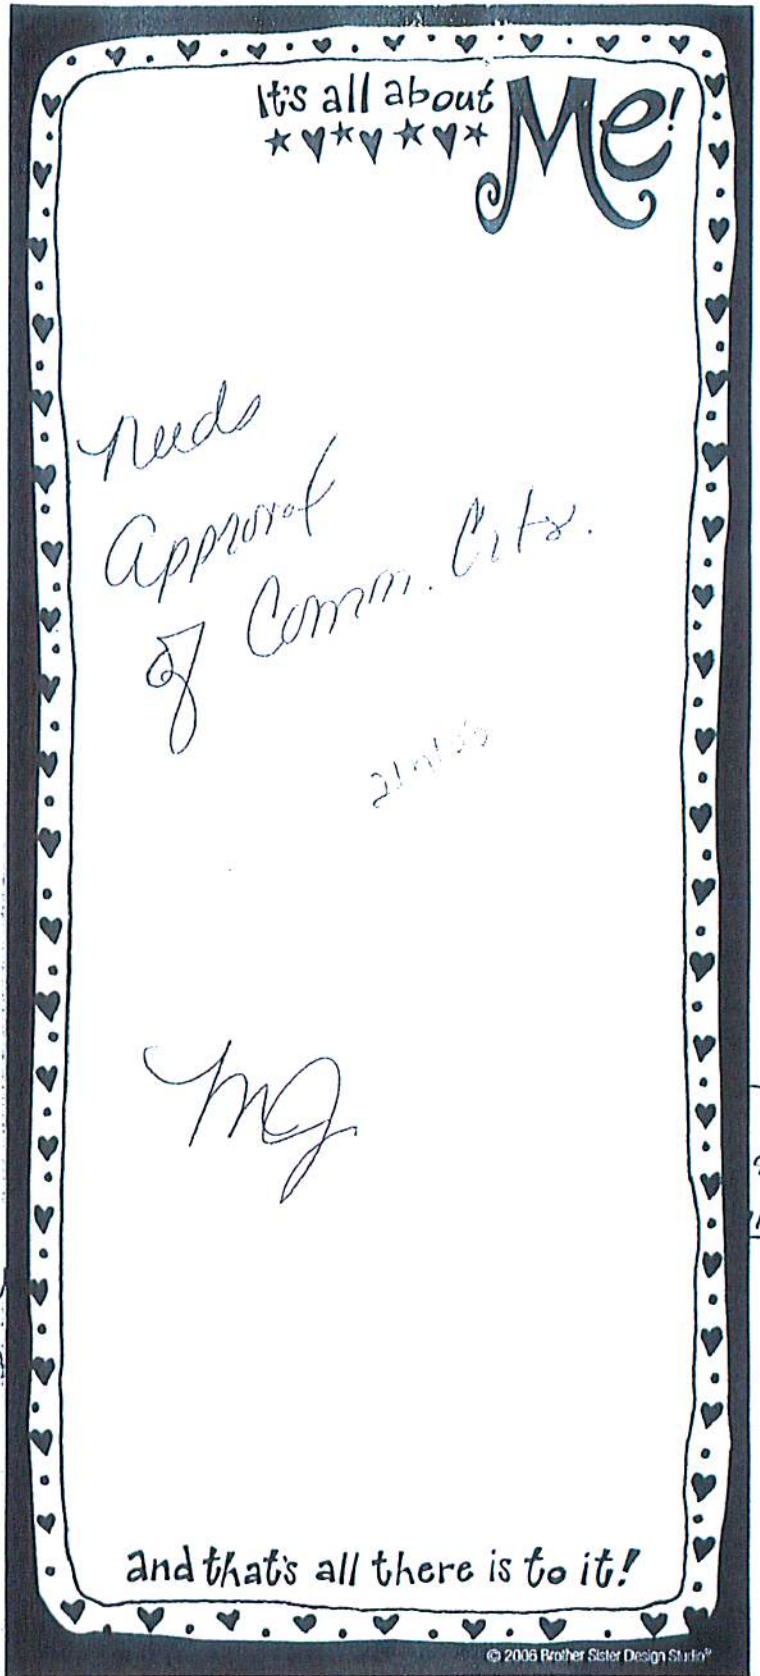 It's all about Me!
Needs
Approval
of Comm. City.
MJ
and that's all there is to it!
© 2006 Brother Sister Design Studio